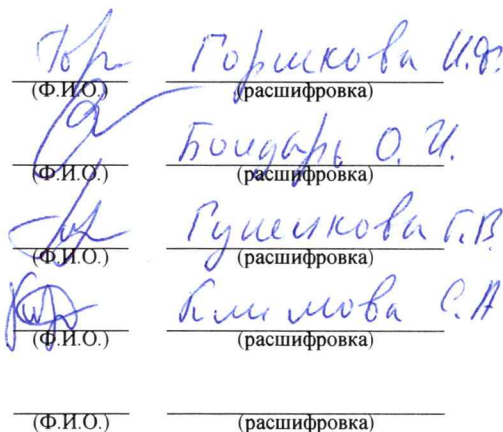 Горшкова И.Ф.
(Ф.И.О.) (расшифровка)
Бондарь О. И.
(Ф.И.О.) (расшифровка)
Г.В.
(Ф.И.О.) (расшифровка)
Климова С.А
(Ф.И.О.) (расшифровка)
(Ф.И.О.) (расшифровка)